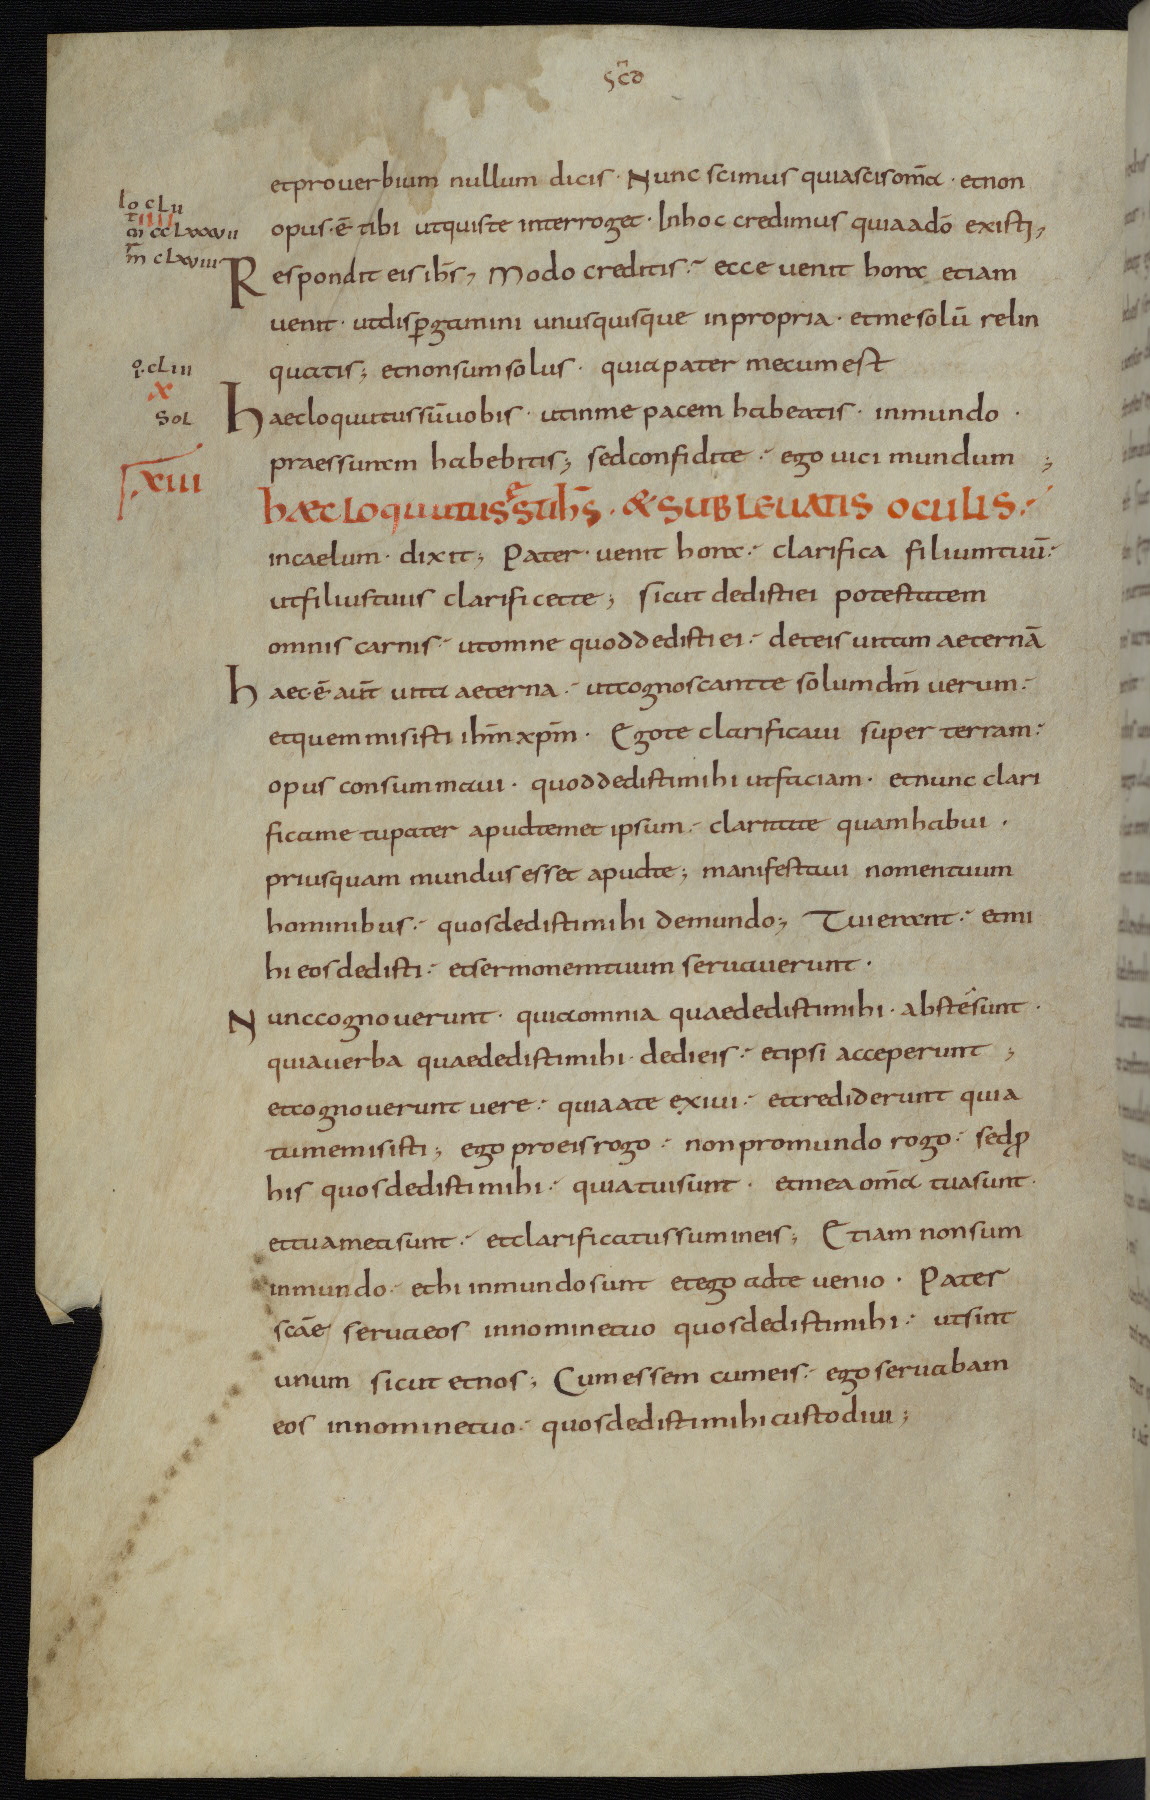 scd̄
et proverbium nullum dicis · Nunc scimus quia scis om̄a · et non
lo cLII
opus · ē tibi ut quis te interroget · In hoc credimus quia a dō existi;
IIII
m̄ ccLxxxvii
m̄ cLxviii
Respondit eis ihs̄; Modo creditis :- ecce venit hora et iam
venit · ut disp̄gamini unusquisque in propria · et me solū relin
quatis; et non sum solus · quia pater mecum est
cLIII
x
SOL
haec loquutus sū vobis · ut in me pacem habeatis · in mundo ·
praessuram habebitis; sed confidite :- ego vici mundum ;
xiii
haec loquutus est ihs̄ · & SUBLEVATIS OCULIS :-
in caelum · dixit; Pater · venit hora :- clarifica filium tuū :-
ut filius tuus clarificet te; sicut dedisti ei potestatem
omnis carnis :- ut omne quod dedisti ei :- det eis vitam aeternā
haec · ē aut̄ vita aeterna :- ut cognoscant te solum dm̄ verum :-
et quem misisti ihm̄ xpm̄ · Ego te clarificavi super terram :-
opus consummavi · quod dedisti mihi ut faciam · et nunc clari
fica me tu pater apud temet ipsum :- claritate quam habui ·
priusquam mundus esset apud te; manifestavi nomen tuum
hominibus :- quos dedisti mihi de mundo; Tui erant :- et mi
hi eos dedisti :- et sermonem tuum servaverunt ·
Nunc cognoverunt · quia omnia quae dedisti mihi · abs te sunt ·
quia verba quae dedisti mihi · dedi eis :- et ipsi acceperunt ;
et cognoverunt vere :- quia a te exivi :- et crediderunt quia
tu me misisti; ego pro eis rogo :- non pro mundo rogo :- sed ꝓ
his quos dedisti mihi :- quia tui sunt · et mea om̄a tua sunt ·
et tua mea sunt :- et clarificatus sum in eis; Et iam non sum
in mundo :- et hi in mundo sunt et ego ad te venio · Pater
scāe serva eos in nomine tuo quos dedisti mihi :- ut sint
unum sicut et nos; Cum essem cum eis :- ego servabam
eos in nomine tuo :- quos dedisti mihi custodivi;